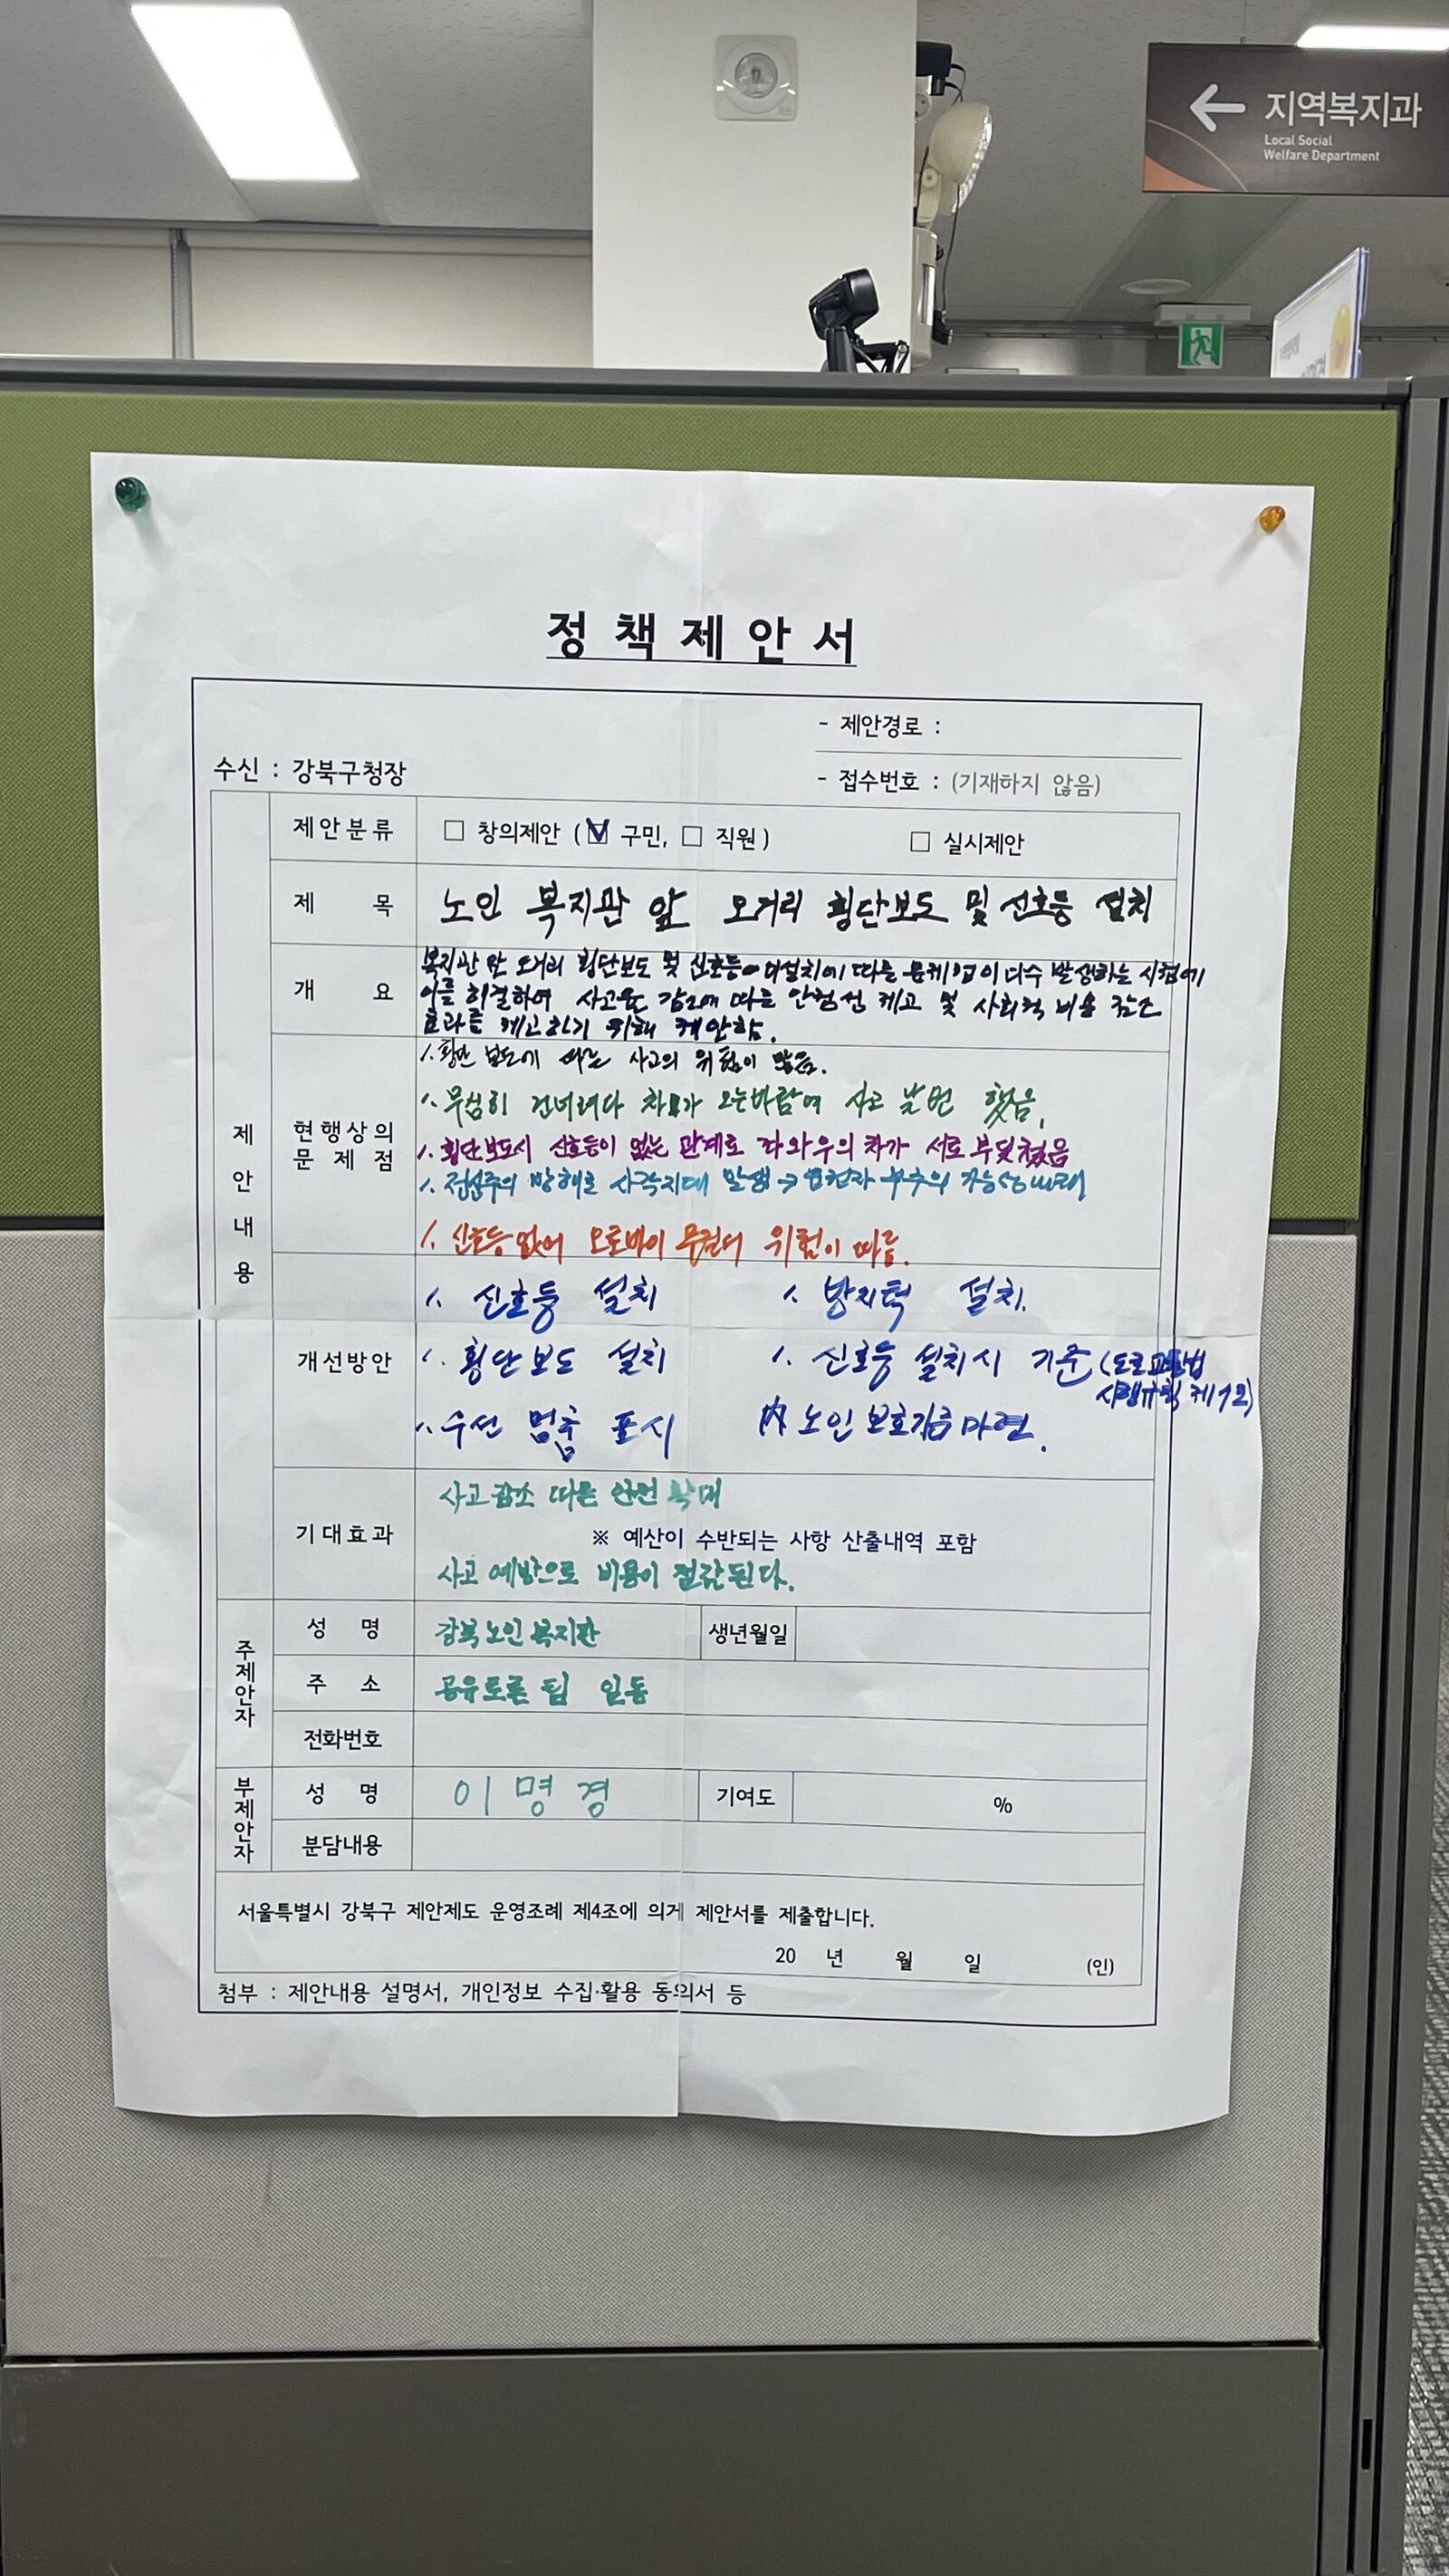 지역복지과
Local Social
Welfare Department
정 책 제 안 서
- 제안경로 :
수신 : 강북구청장
- 접수번호 : (기재하지 않음)
제안내용
제안분류
□ 창의제안 ( ☑ 구민, □ 직원 ) □ 실시제안
제 목
노인 복지관 앞 오거리 횡단보도 및 신호등 설치
개 요
복지관 앞 오거리 횡단보도 및 신호등 미설치에 따른 문제점이 다수 발생하는 시점에
이를 해결하여 사고율 감소에 따른 안정성 제고 및 사회적 비용 감소
효과를 제고하기 위해 제안함.
현행상의
문 제 점
1. 횡단 보도에 따른 사고의 위험이 많음.
1. 무심히 건너려다 차가 오는바람에 사고 날번 했음.
1. 횡단보도시 신호등이 없는 관계로 좌와우의 차가 서로 부딪쳤음
1. 전신주의 방해로 사각지대 발생 → 운전자 부주의 가능성
1. 신호등 없어 오토바이 위험이 따름.
개선방안
1. 신호등 설치 1. 방지턱 설치.
1. 횡단보도 설치 1. 신호등 설치시 기준 (도로교통법
시행규칙 제12)
1. 우선 멈춤 표시 內 노인 보호기금마련.
기대효과
사고감소 따른 안전 확대
※ 예산이 수반되는 사항 산출내역 포함
사고 예방으로 비용이 절감된다.
주제안자
성 명
강북노인복지관
생년월일
주 소
공유토론 팀 일동
전화번호
부제안자
성 명
이명경
기여도
%
분담내용
서울특별시 강북구 제안제도 운영조례 제4조에 의게 제안서를 제출합니다.
20 년 월 일 (인)
첨부 : 제안내용 설명서, 개인정보 수집·활용 동의서 등